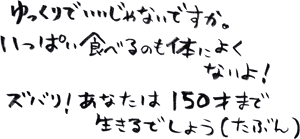 ゆっくりでいいじゃないですか。
いっぱい食べるのも体によく
ないよ!
ズバリ!あなたは150才まで
生きるでしょう(たぶん)